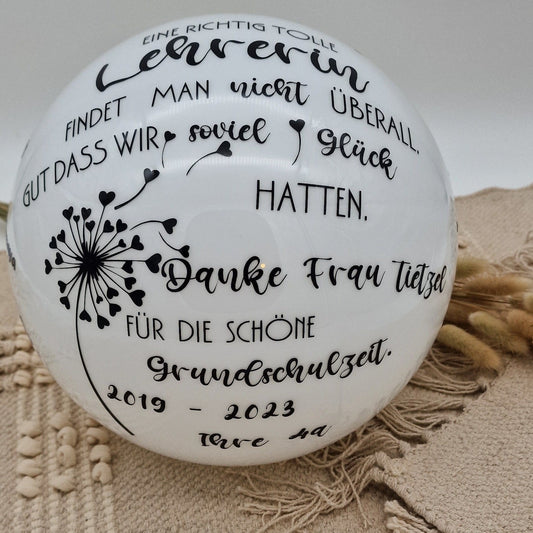 EINE RICHTIG TOLLE
Lehrerin
FINDET MAN nicht ÜBERALL.
GUT DASS WIR soviel Glück
HATTEN.
Danke Frau Tietzel
FÜR DIE SCHÖNE
Grundschulzeit.
2019 - 2023
Ihre 4a